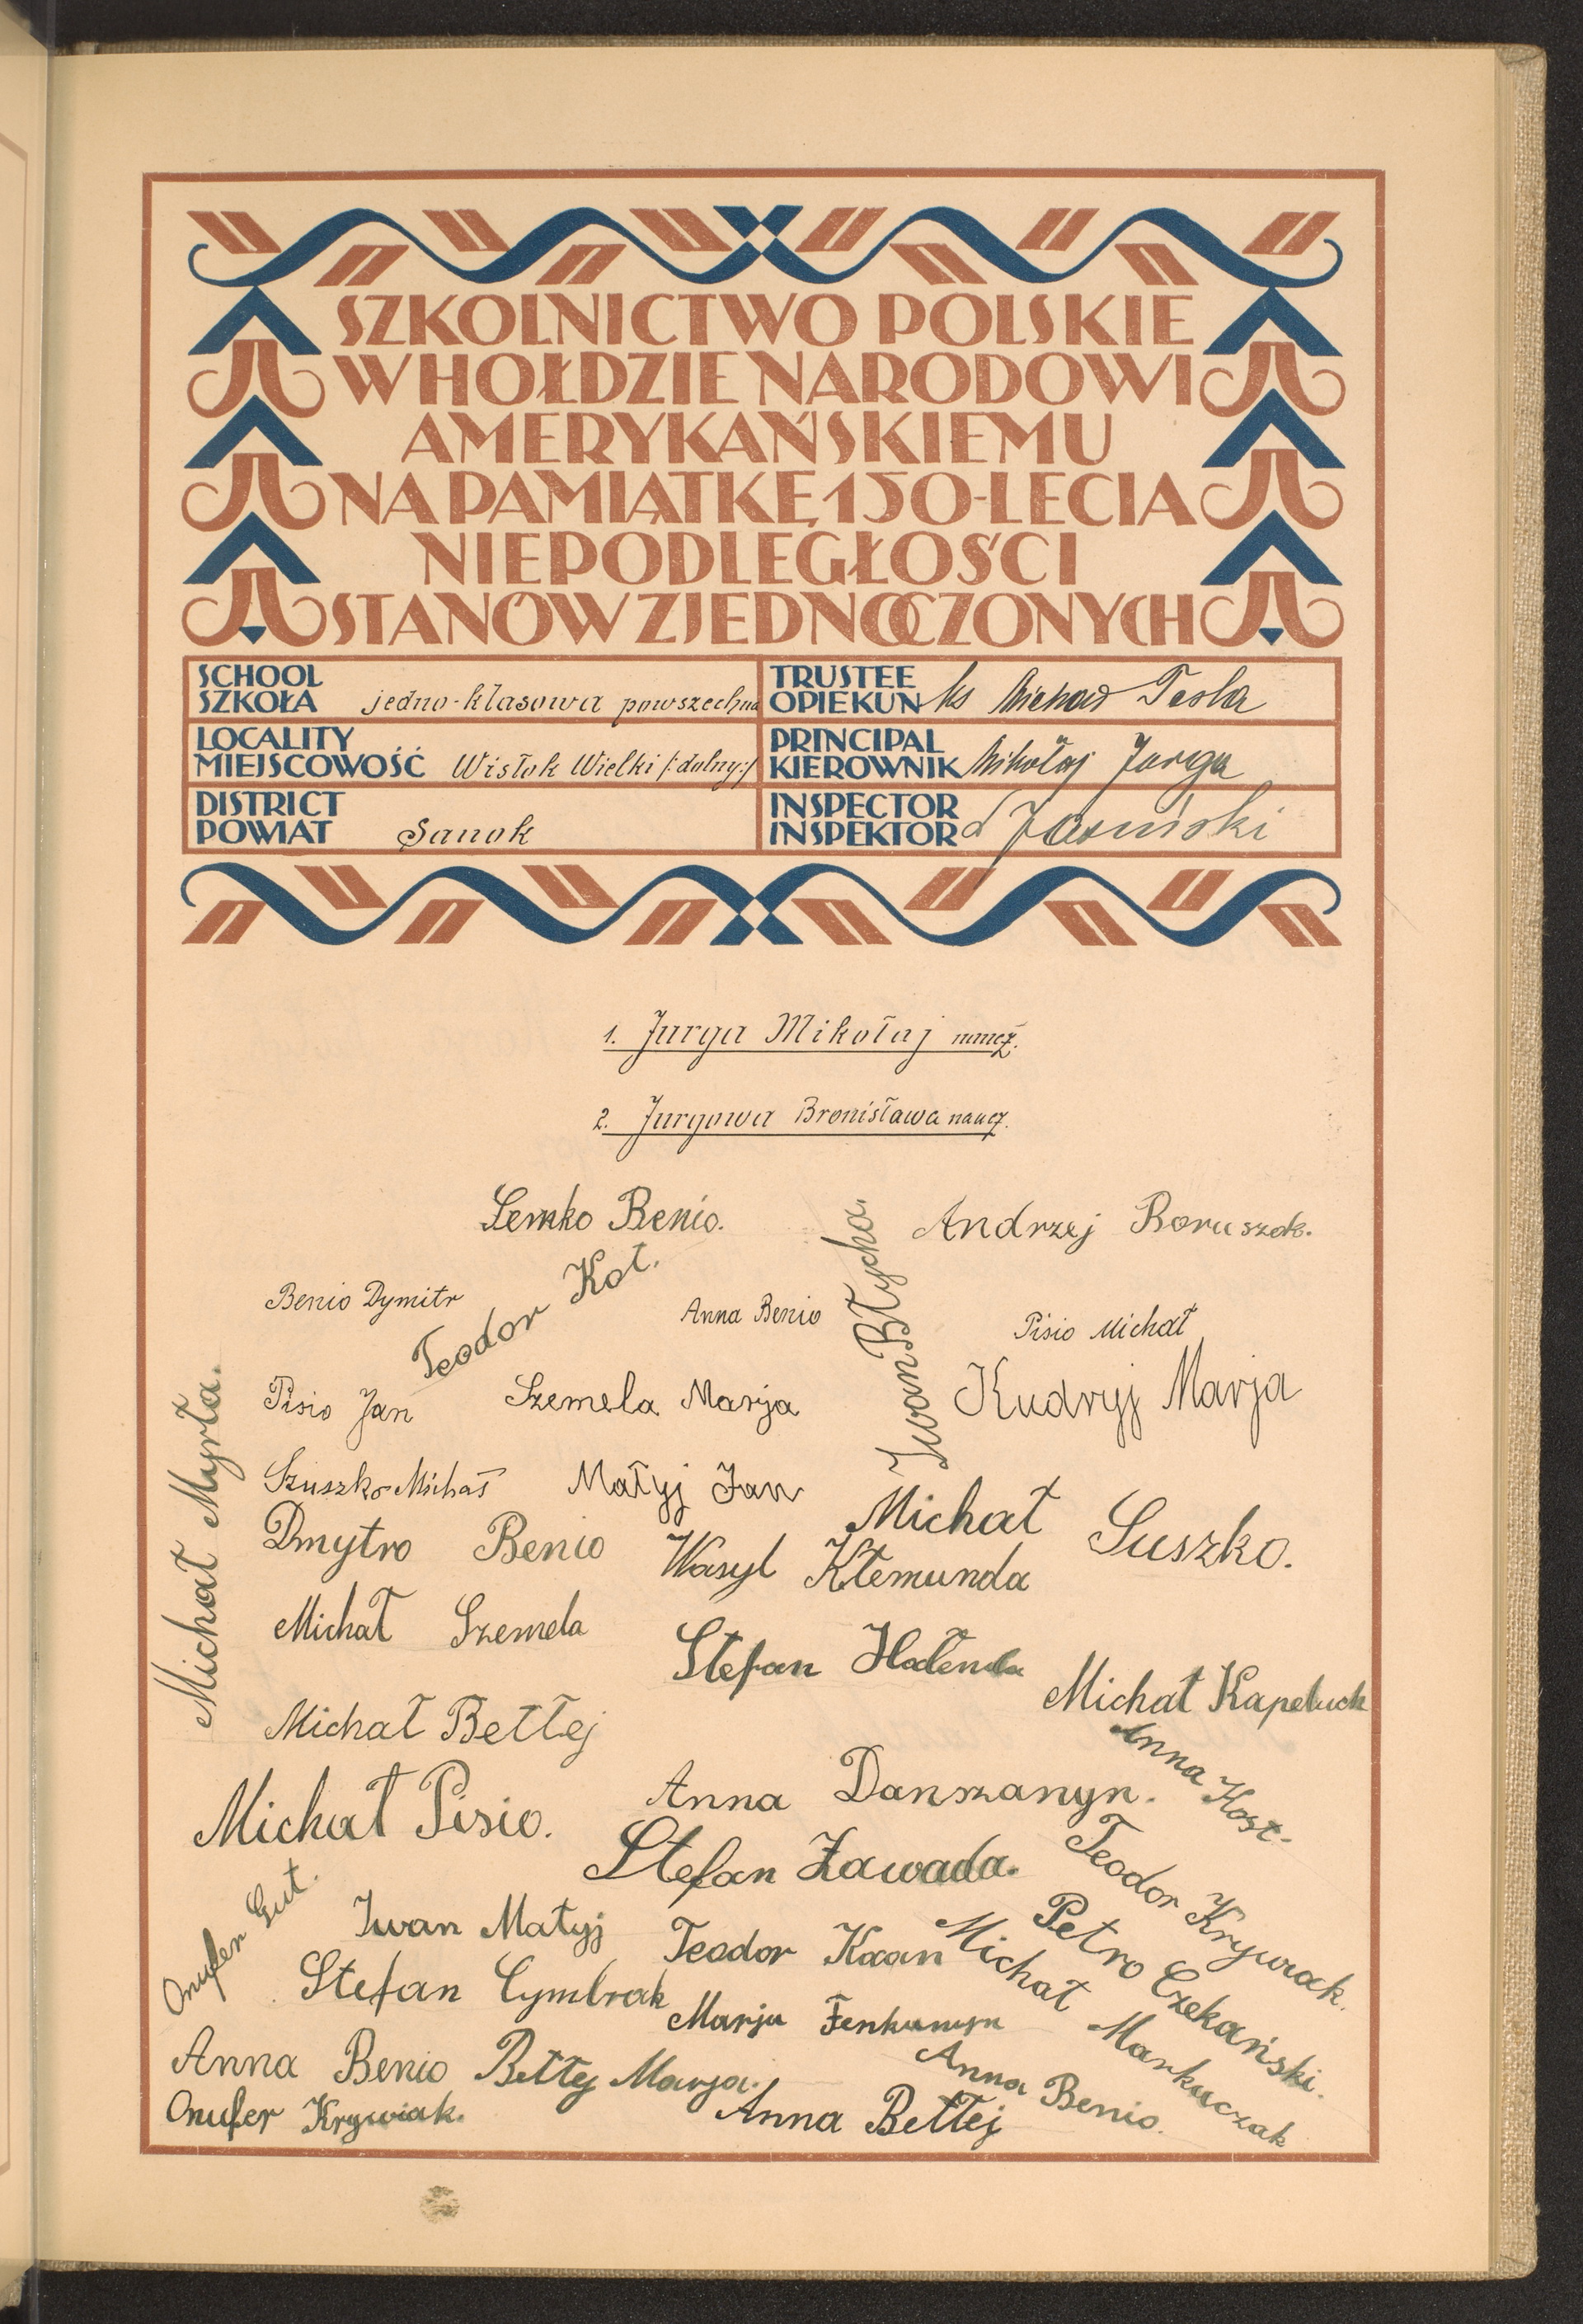 SZKOLNICTWO POLSKIE
W HOŁDZIE NARODOWI
AMERYKAŃSKIEMU
NA PAMIĄTKĘ 150-LECIA
NIEPODLEGŁOŚCI
STANÓW ZJEDNOCZONYCH
SCHOOL
SZKOŁA jedno-klasowa powszechna
TRUSTEE
OPIEKUN ks Michał Tesla
LOCALITY
MIEJSCOWOŚĆ Wisłok Wielki /:dolny:/
PRINCIPAL
KIEROWNIK Mikołaj Jurga
DISTRICT
POWIAT Sanok
INSPECTOR
INSPEKTOR Jasiński
1. Jurga Mikołaj naucz.
2. Jurgowa Bronisława naucz.
Semko Benio.
Andrzej Boruszok.
Iwan Błycha.
Benio Dymitr
Teodor Kot.
Anna Benio
Pisio Michał
Pisio Jan
Szemela Marja
Kudryj Marja
Michał Myrla.
Szuszko Michał
Małyj Jan
Michał Suszko.
Dmytro Benio
Wasyl Kłemunda
Michał Szemela
Stefan Hałenda
Michał Kapeluch
Michał Bełłej
Anna Kost.
Anna Danszanyn.
Michał Pisio.
Stefan Zawada.
Teodor Krywiak.
Onufer Gut.
Iwan Małyj
Teodor Kaan
Petro Czekański.
Michał Markuczak
Stefan Cymbrak
Marja Fenkanyn
Anna Benio
Bełłej Marja.
Anna Benio.
Onufer Krywiak.
Anna Bełłej